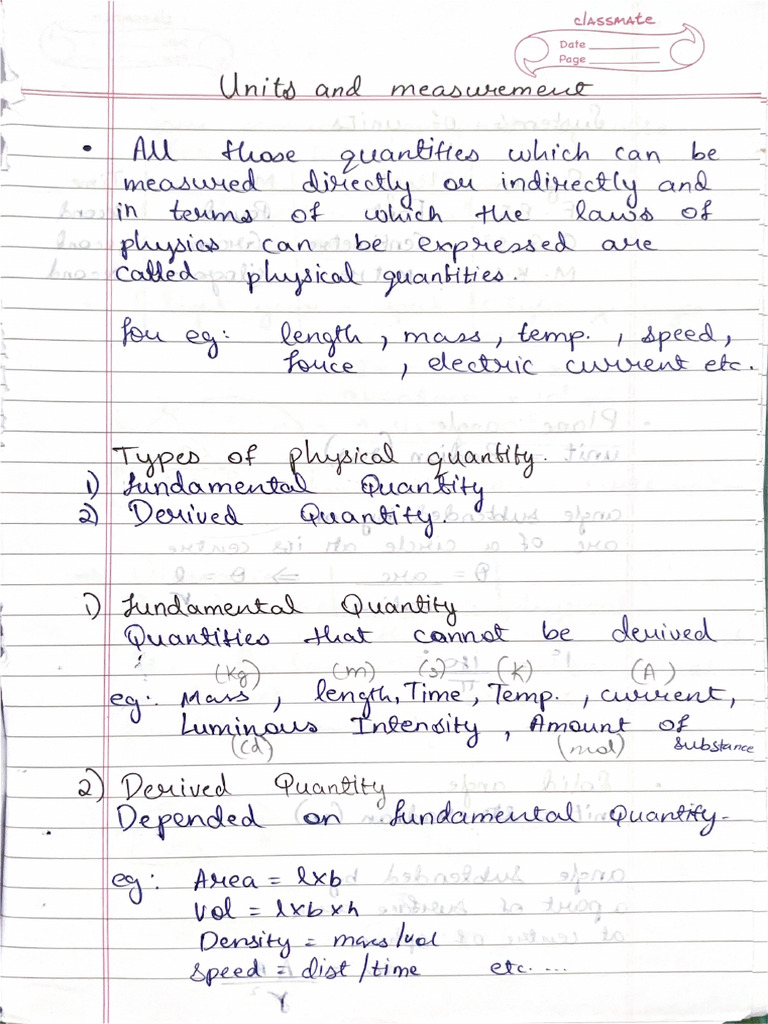 classmate
Date
Page
Units and measurement
• All those quantities which can be
measured directly or indirectly and
in terms of which the laws of
physics can be expressed are
called physical quantities.
for eg: length, mass, temp., speed,
force, electric current etc.
Types of physical quantity.
1) Fundamental Quantity
2) Derived Quantity.
1) Fundamental Quantity
Quantities that cannot be derived
(Kg) (m) (s) (K) (A)
eg: Mass, length, Time, Temp., current,
Luminous Intensity, Amount of substance
(cd) (mol)
2) Derived Quantity
Depended on fundamental Quantity.
eg: Area = l×b
Vol = l×b×h
Density = mass/vol
Speed = dist/time etc....